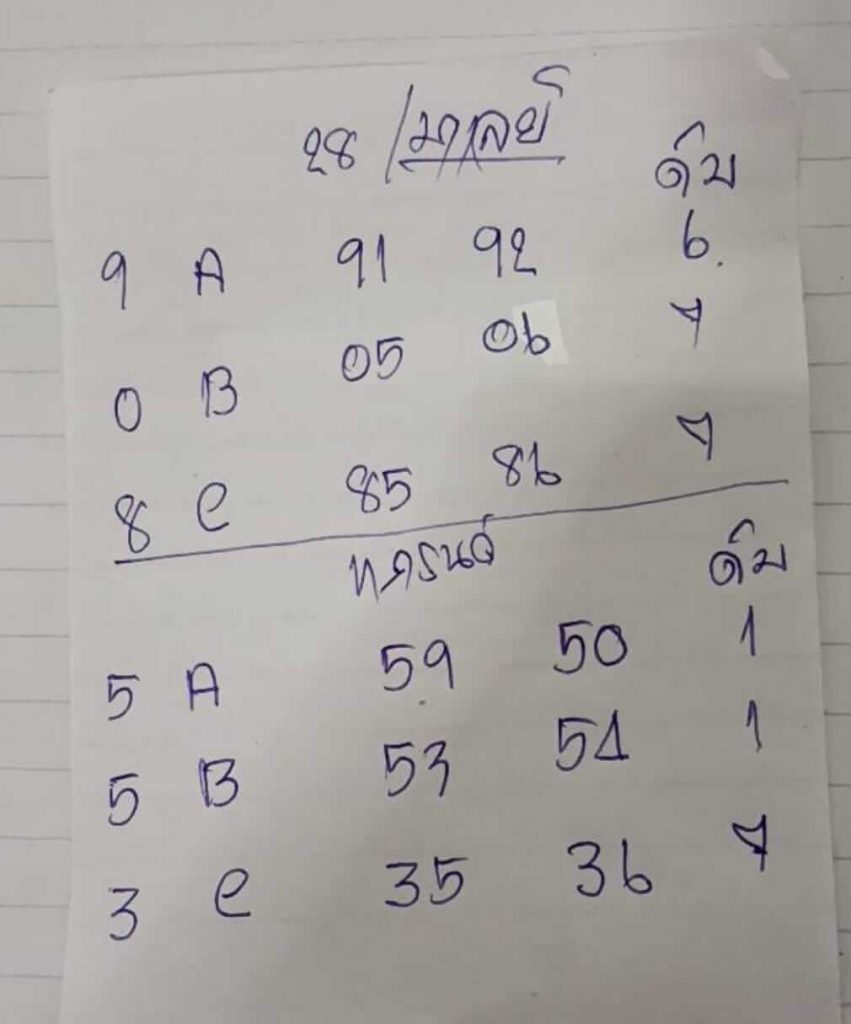 28 / มาเลย์
ดับ
9 A 91 92 6.
0 B 05 06 7
8 C 85 86 7
ดับ
5 A 59 50 1
5 B 53 54 1
3 C 35 36 7